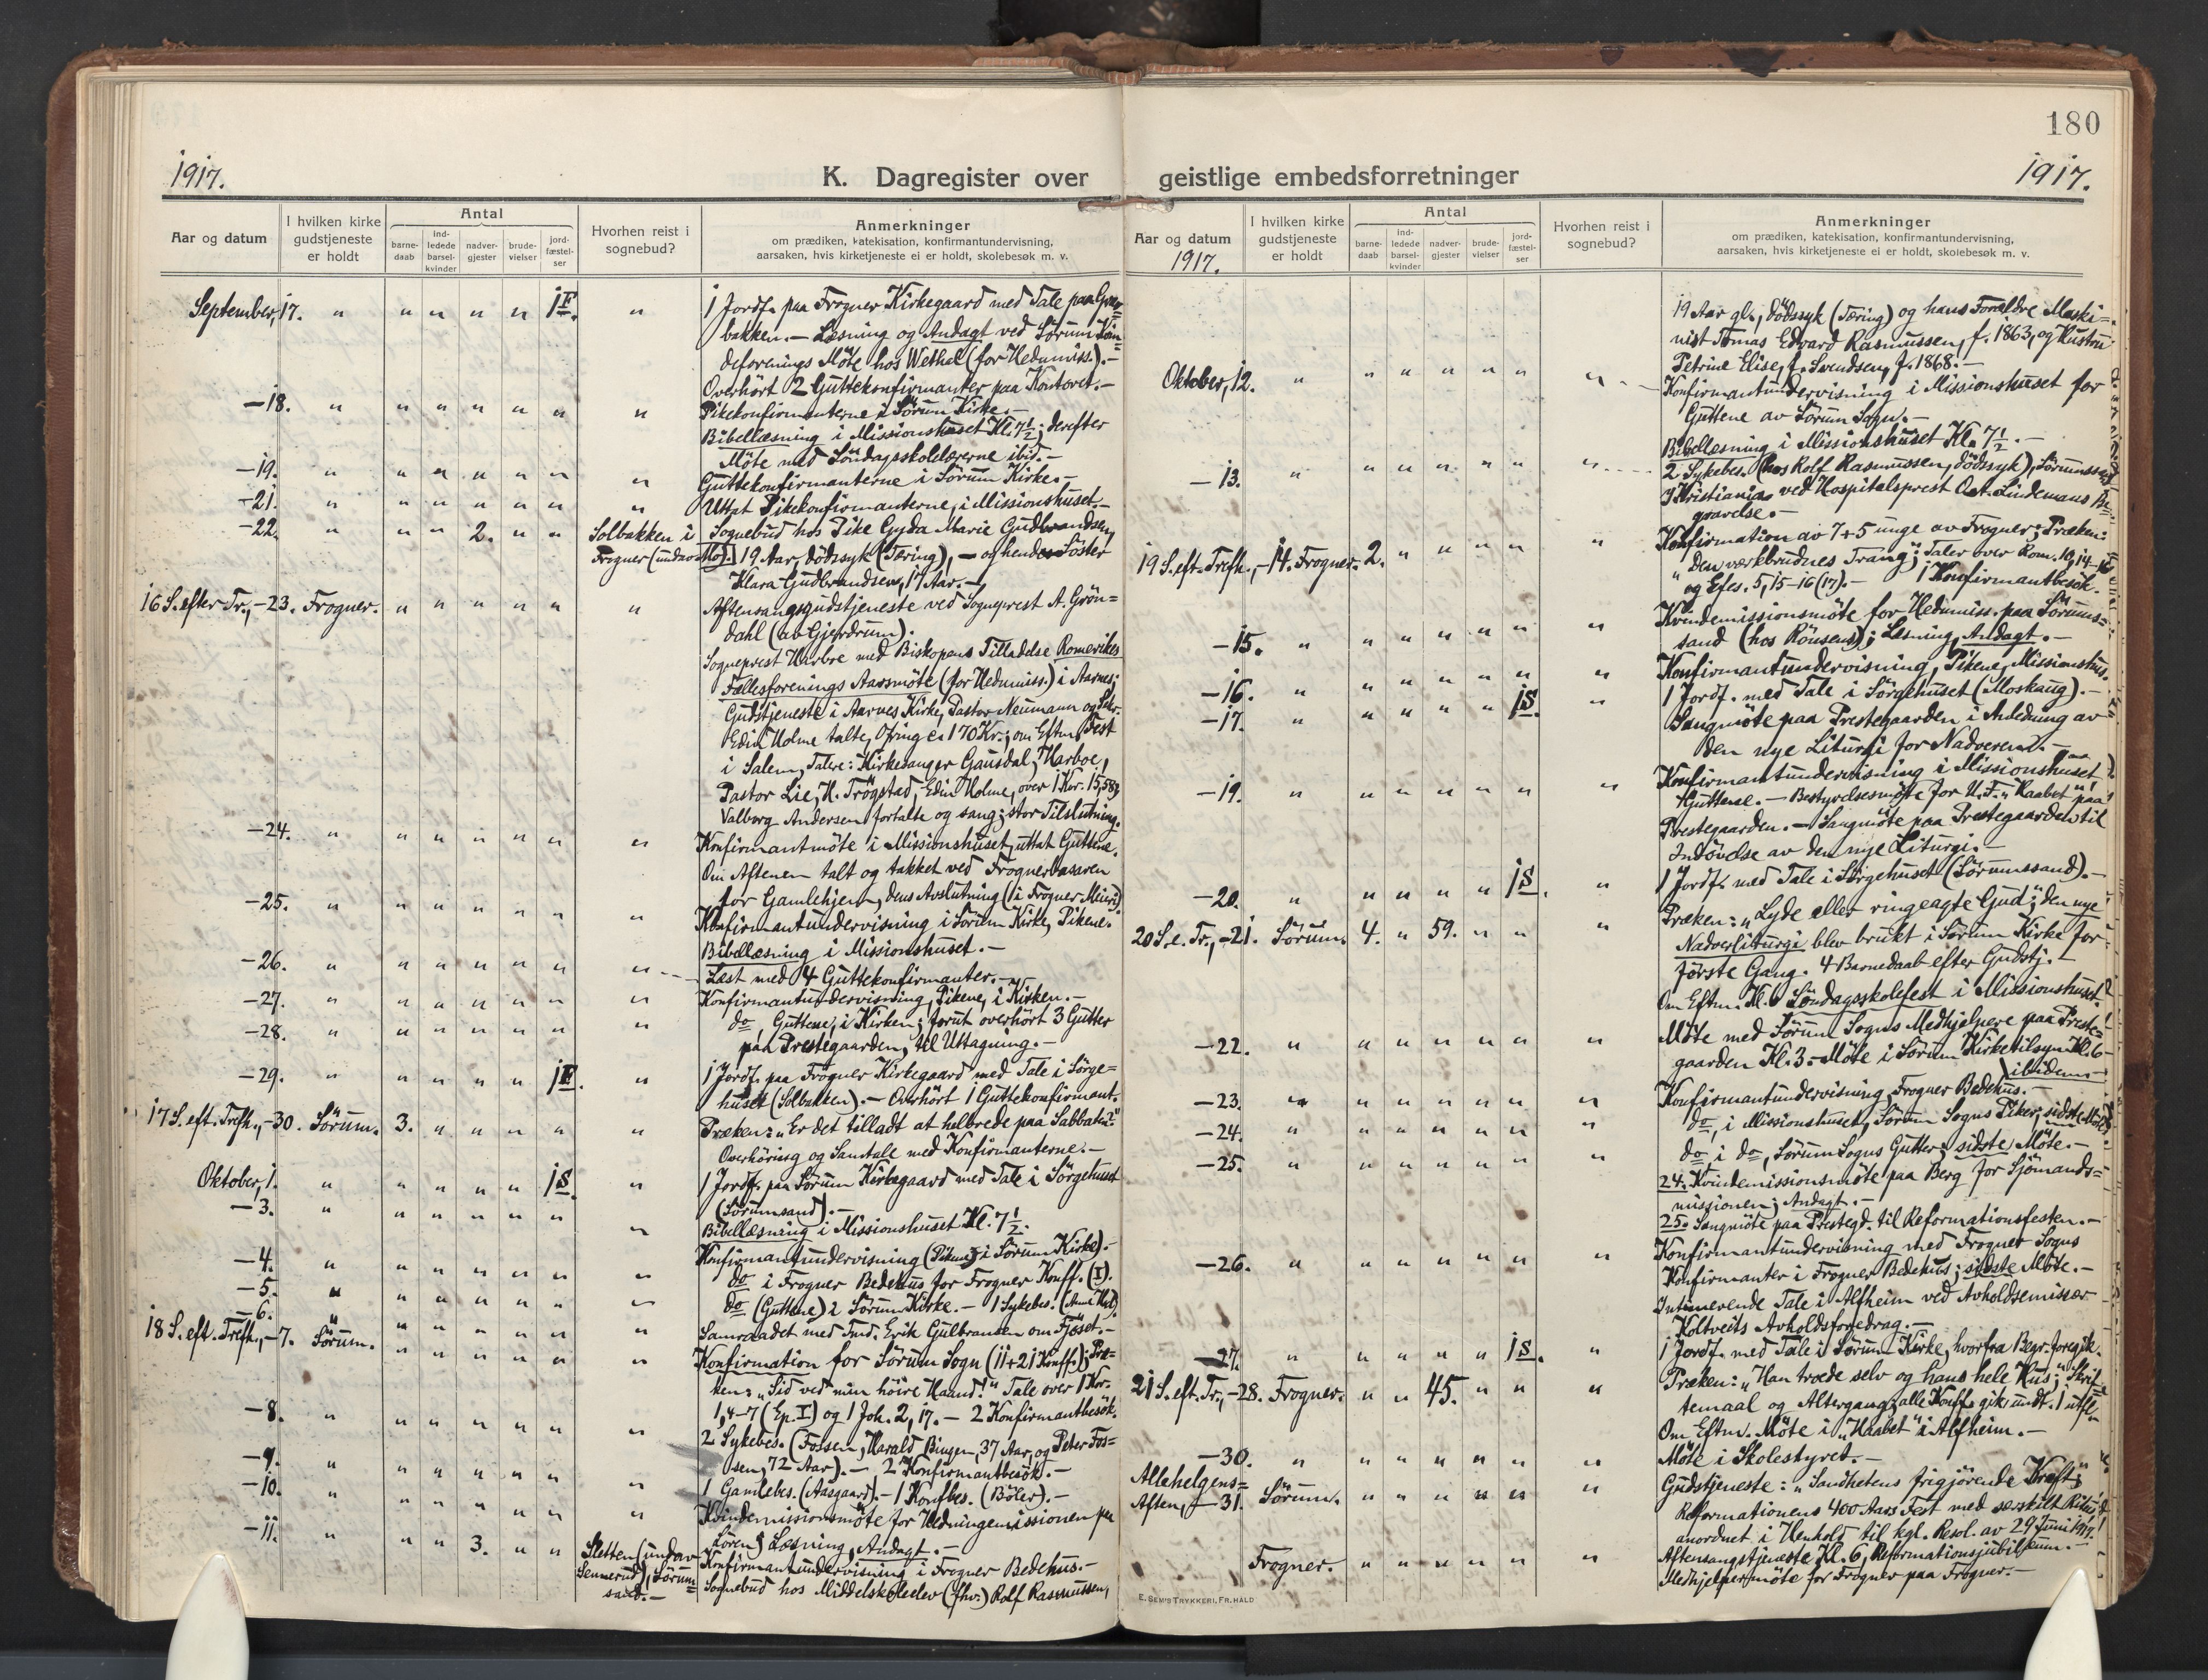 180
1917.
K. Dagregister over geistlige embedsforretninger
1917.
Aar og datum
I hvilken kirke gudstjeneste er holdt
Antal
barne-daab
ind-ledede barsel-kvinder
nadver-gjester
brude-vielser
jord-fæstel-ser
Hvorhen reist i sognebud?
Anmerkninger
om prædiken, katekisation, konfirmantundervisning,
aarsaken, hvis kirketjeneste ei er holdt, skolebesøk m. v.
September, 17. " " " " " 1F. " 1 Jordf. paa Frogner Kirkegaard med Tale paa Grøn=
bakken. — Læsning og Andagt ved Sörum Kvin=
deforenings Möte hos Wethal (for Hedmiss.). —
Overhört 2 Guttekonfirmanter paa Kontoret. —
—18. " " " " " " " Pikekonfirmanterne i Sörum Kirke. —
Bibellæsning i Missionshuset Kl. 7½; derefter
Möte med Söndagsskolelærerne ibid. —
—19. " " " " " " " Guttekonfirmanterne i Sörum Kirke. —
—21. " " " " " " " Uttat Pikekonfirmanterne, i Missionshuset. —
—22. " " " 2. " " Solbakken i Sognebud hos Pike Gyda Marie Gudbrandsen,
Frogner (under 19 Aar, dödssyk (Tæring), — og hendes Söster
Klara Gudbrandsen, 17 Aar. —
16 S. efter Tr., —23. Frogner. " " " " " " Aftensangsgudstjeneste ved Sogneprest A. Grön=
dahl (av Gjerdrum).
Sogneprest Harboe med Biskopens Tilladelse Romerikes
Fællesforenings Aarsmöte (for Hedmiss.) i Aarnes;
Gudstjeneste i Aarnes Kirke, Pastor Neumann og Sekr.
Edin Holme talte, Ofring ca 170 Kr.; om Eftm. Fest
i Salem, Talere: Kirkesanger Gausdal, Harboe,
Pastor Lie, H. Trögstad, Edin Holme, over 1 Kor. 15,58;
Valborg Andersen fortalte og sang; stor Tilslutning.
—24. " " " " " " " Konfirmantmöte i Missionshuset, uttat Guttene.
Om Aftenen talt og takket ved Frognerbasaren
for Gamlehjem, dens Avslutning (i Frogner Meieri).
—25. " " " " " " " Konfirmantundervisning i Sörum Kirke, Pikene.
Bibellæsning i Missionshuset. —
—26. " " " " " " " Læst med 4 Guttekonfirmanter. —
—27. " " " " " " " Konfirmantundervisning, Pikene, i Kirken. —
—28. " " " " " " " do, Guttene, i Kirken; forut overhört 3 Gutter
paa Prestegaarden, til Uttagning. —
—29. " " " " " 1F. " 1 Jordf. paa Frogner Kirkegaard med Tale i Sörge=
huset (Solbakken). — Overhört 1 Guttekonfirmant.
17 S. eft. Trefh., —30. Sörum. 3. " " " " " Præken: "Er det tilladt at helbrede paa Sabbaten?"
Overhöring og Samtale med Konfirmanterne. —
Oktober, 1. " " " " " 1S. " 1 Jordf. paa Sörum Kirkegaard med Tale i Sörgehuset
(Sörumsand). —
—3. " " " " " " " Bibellæsning i Missionshuset Kl. 7½.
Konfirmantundervisning (Pikene) i Sörum Kirke). —
—4. " " " " " " " do i Frogner Bedehus for Frogner Konff. (I).
—5. " " " " " " " do (Guttene) i Sörum Kirke. — 1 Sykebes.
—6. " " " " " " " Samraadet med Fmd. Erik Gulbransen om Fjöset. —
18 S. eft. Trefh., —7. Sörum. " " " " " " Konfirmation for Sörum Sogn (11+21 Konff.); Præ=
ken: "Sid ved min höire Haand!" Tale over 1 Kor.
1,4—7 (Ep. I) og 1 Joh. 2,17. — 2 Konfirmantbesök.
—8. " " " " " " " 2 Sykebes. (Fossen, Harald Bingen, 37 Aar, og Peter Fos=
sen, 72 Aar). — 2 Konfirmantbesök. —
—9. " " " " " " " 1 Gamlebes. (Aasgaard). — 1 Konfbes. (Böler). —
—10. " " " " " " " Kvindemissionsmöte for Hedningemissionen paa
Lören; Læsning, Andagt. —
—11. " " " 3. " " Sletten (under Konfirmantundervisning i Frogner Bedehus. —
Sennerud), Sörum= Sognebud hos Middelskoleelev (fhv.) Rolf Rasmussen,
sand. —
Aar og datum
1917.
I hvilken kirke gudstjeneste er holdt
Antal
barne-daab
ind-ledede barsel-kvinder
nadver-gjester
brude-vielser
jord-fæstel-ser
Hvorhen reist i sognebud?
Anmerkninger
om prædiken, katekisation, konfirmantundervisning,
aarsaken, hvis kirketjeneste ei er holdt, skolebesøk m. v.
19 Aar gl., dödssyk (Tæring) og hans Forældre Maski=
nist Tomas Edvard Rasmussen, f. 1863, og Hustru
Petrine Elise, f. Svendsen, f. 1868. —
Oktober, 12. " " " " " " " Konfirmantundervisning i Missionshuset for
Guttene av Sörum Sogn. —
Bibellæsning i Missionshuset Kl. 7½. —
—13. " " " " " " " 2 Sykebes. (hos Rolf Rasmussen, dödssyk), Sörumssand
I Kristiania ved Hospitalsprest Lindemans Be=
gravelse. —
19 S. eft. Trefh., —14. Frogner. 2. " " " " " Konfirmation av 7+5 unge av Frogner; Præken:
"Den værkbrudnes Trang"; Taler over Rom. 10,14—15
og Efes. 5,15—16 (17). — 1 Konfirmantbesök.
—15. " " " " " " " Kvindemissionsmöte for Hedmiss. paa Sörums=
sand (hos Rönsens); Læsning, Andagt. —
—16. " " " " " " " Konfirmantundervisning, Pikene, Missionshus.
—17. " " " " " 1S. " 1 Jordf. med Tale i Sörgehuset (Moskaug). —
Sangmöte paa Prestegaarden i Anledning av
den nye Liturgi for Nadveren. —
—19. " " " " " " " Konfirmantundervisning i Missionshuset,
Guttene. — Bestyrelsesmöte for U. F. "Haabet" paa
Prestegaarden. — Sangmöte paa Prestegaarden til
Indövelse av den nye Liturgi. —
—20. " " " " " 1S. " 1 Jordf. med Tale i Sörgehuset (Sörumssand). —
20 S. e. Tr., —21. Sörum. 4. " 59. " " " Præken: "Lyde eller ringeagte Gud"; den nye
Nadverliturgi blev brukt i Sörum Kirke for
förste Gang. 4 Barnedaab efter Gudstj. —
Om Eftm. Kl. 6 Söndagsskolefest i Missionshuset.
—22. " " " " " " " Möte med Sörum Sogns Medhjelpere paa Preste=
gaarden Kl. 3. — Möte i Sörum Kirketilsyn Kl. 6
ibidem —
—23. " " " " " " " Konfirmantundervisning, Frogner Bedehus. —
—24. " " " " " " " do, i Missionshuset, Sörum Sogns Piker, sidste Möte
—25. " " " " " " " do i do, Sörum Sogns Gutter, sidste Möte. —
24. Kvindemissionsmöte paa Berg for Sjömands=
missionen; Andagt. —
25. Sangmöte paa Prestegd. til Reformationsfesten. —
—26. " " " " " " " Konfirmantundervisning med Frogner Sogns
Konfirmanter i Frogner Bedehus; sidste Möte. —
Intimerende Tale i Alfheim ved Avholdsemissær
Koltveits Avholdsforedrag. —
—27. " " " " " 1S. " 1 Jordf. med Tale i Sörum Kirke, hvorfra Begr. foregik.
21 S. eft. Tr., —28. Frogner. " " 45. " " " Præken: "Han troede selv og hans hele Hus"; Skrif=
temaal og Altergang, alle Konff. gik undt. 1
Om Eftm. Möte i "Haabet" i Alfheim. —
—30. " " " " " " " Möte i Skolestyret. —
Allehelgens=
Aften, — 31. Sörum. " " " " " " Gudstjeneste: "Sandhetens frigjörende Kraft";
Reformationens 400 Aars Fest med særskilt Ritual
anordnet i Henhold til kgl. Resol. av 29 Juni 1917.
Frogner. " " " " " " Aftensangstjeneste Kl. 6, Reformationsjubilæum. —
Medhjelpermöte for Frogner paa Frogner. —
E. SEM'S TRYKKERI, FR.HALD